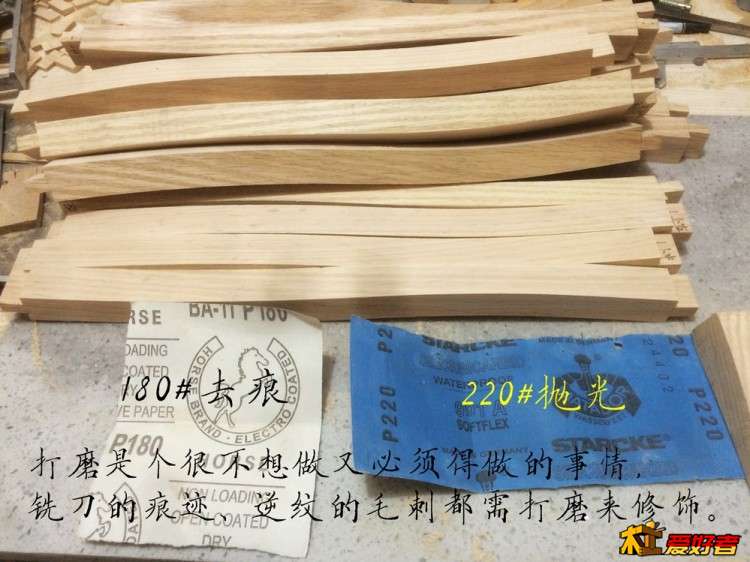 BA-11 P180
RSE
LOADING
COATED
VE PAPER
HORSE BRAND · ELECTRO COATED
180#去痕
P180
HORSE
NON LOADING
OPEN COATED
DRY
P220
P2
STARCKE
WATER
SOFTFLEX
STARCKE
20
P220
220#抛光
打磨是个很不想做又必须得做的事情,
铣刀的痕迹、逆纹的毛刺都需打磨来修饰。
木工爱好者